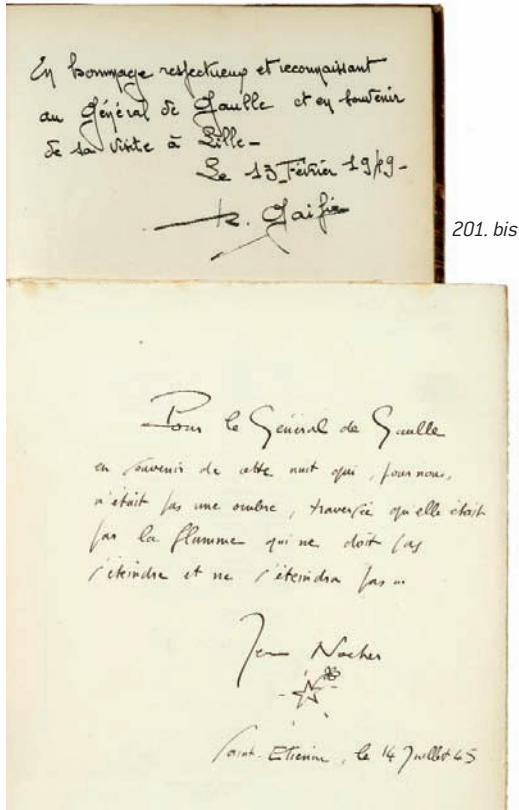 En hommage respectueux et reconnaissant
au Général de Gaulle et en souvenir
de sa visite à Lille –
Le 13 Février 1949 –
201. bis
Pour le Général de Gaulle
en souvenir de cette nuit qui, pour nous,
n'était pas une ombre, traversée qu'elle était
par la flamme qui ne doit pas
s'éteindre et ne s'éteindra pas ...
Jean Nocher
Saint-Etienne, le 14 Juillet 45